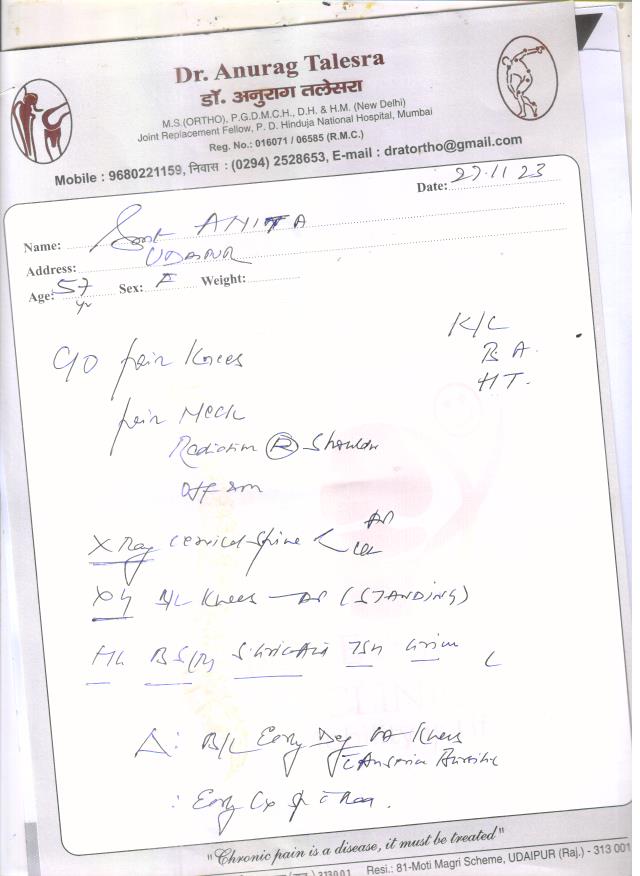 Dr. Anurag Talesra
डॉ. अनुराग तलेसरा
M.S.(ORTHO), P.G.D.M.C.H., D.H. & H.M. (New Delhi)
Joint Replacement Fellow, P. D. Hinduja National Hospital, Mumbai
Reg. No.: 016071 / 06585 (R.M.C.)
Mobile : 9680221159, निवास : (0294) 2528653, E-mail : dratortho@gmail.com
Date: 27.11 23
Name: Smt ANITA
Address: UDAIPUR
Age: 57 yr Sex: F Weight:
K/C
B A.
HT.
C/O pain Knees
pain Neck
Radiation (R) Shoulder
X Ray cervical spine < AP
Lat
XR B/L Knees - AP (STANDING)
TSH
Δ: B/L Early Deg OA Knees
: Early Cx
"Chronic pain is a disease, it must be treated"
Resi.: 81-Moti Magri Scheme, UDAIPUR (Raj.) - 313 001